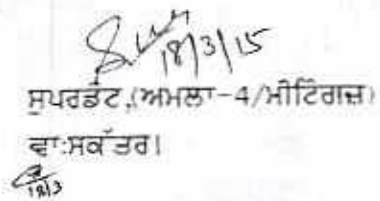 18/3/15
ਸੁਪਰਡੰਟ,(ਅਮਲਾ-4/ਮੀਟਿੰਗਜ਼)
ਵਾ:ਸਕੱਤਰ।
18/3